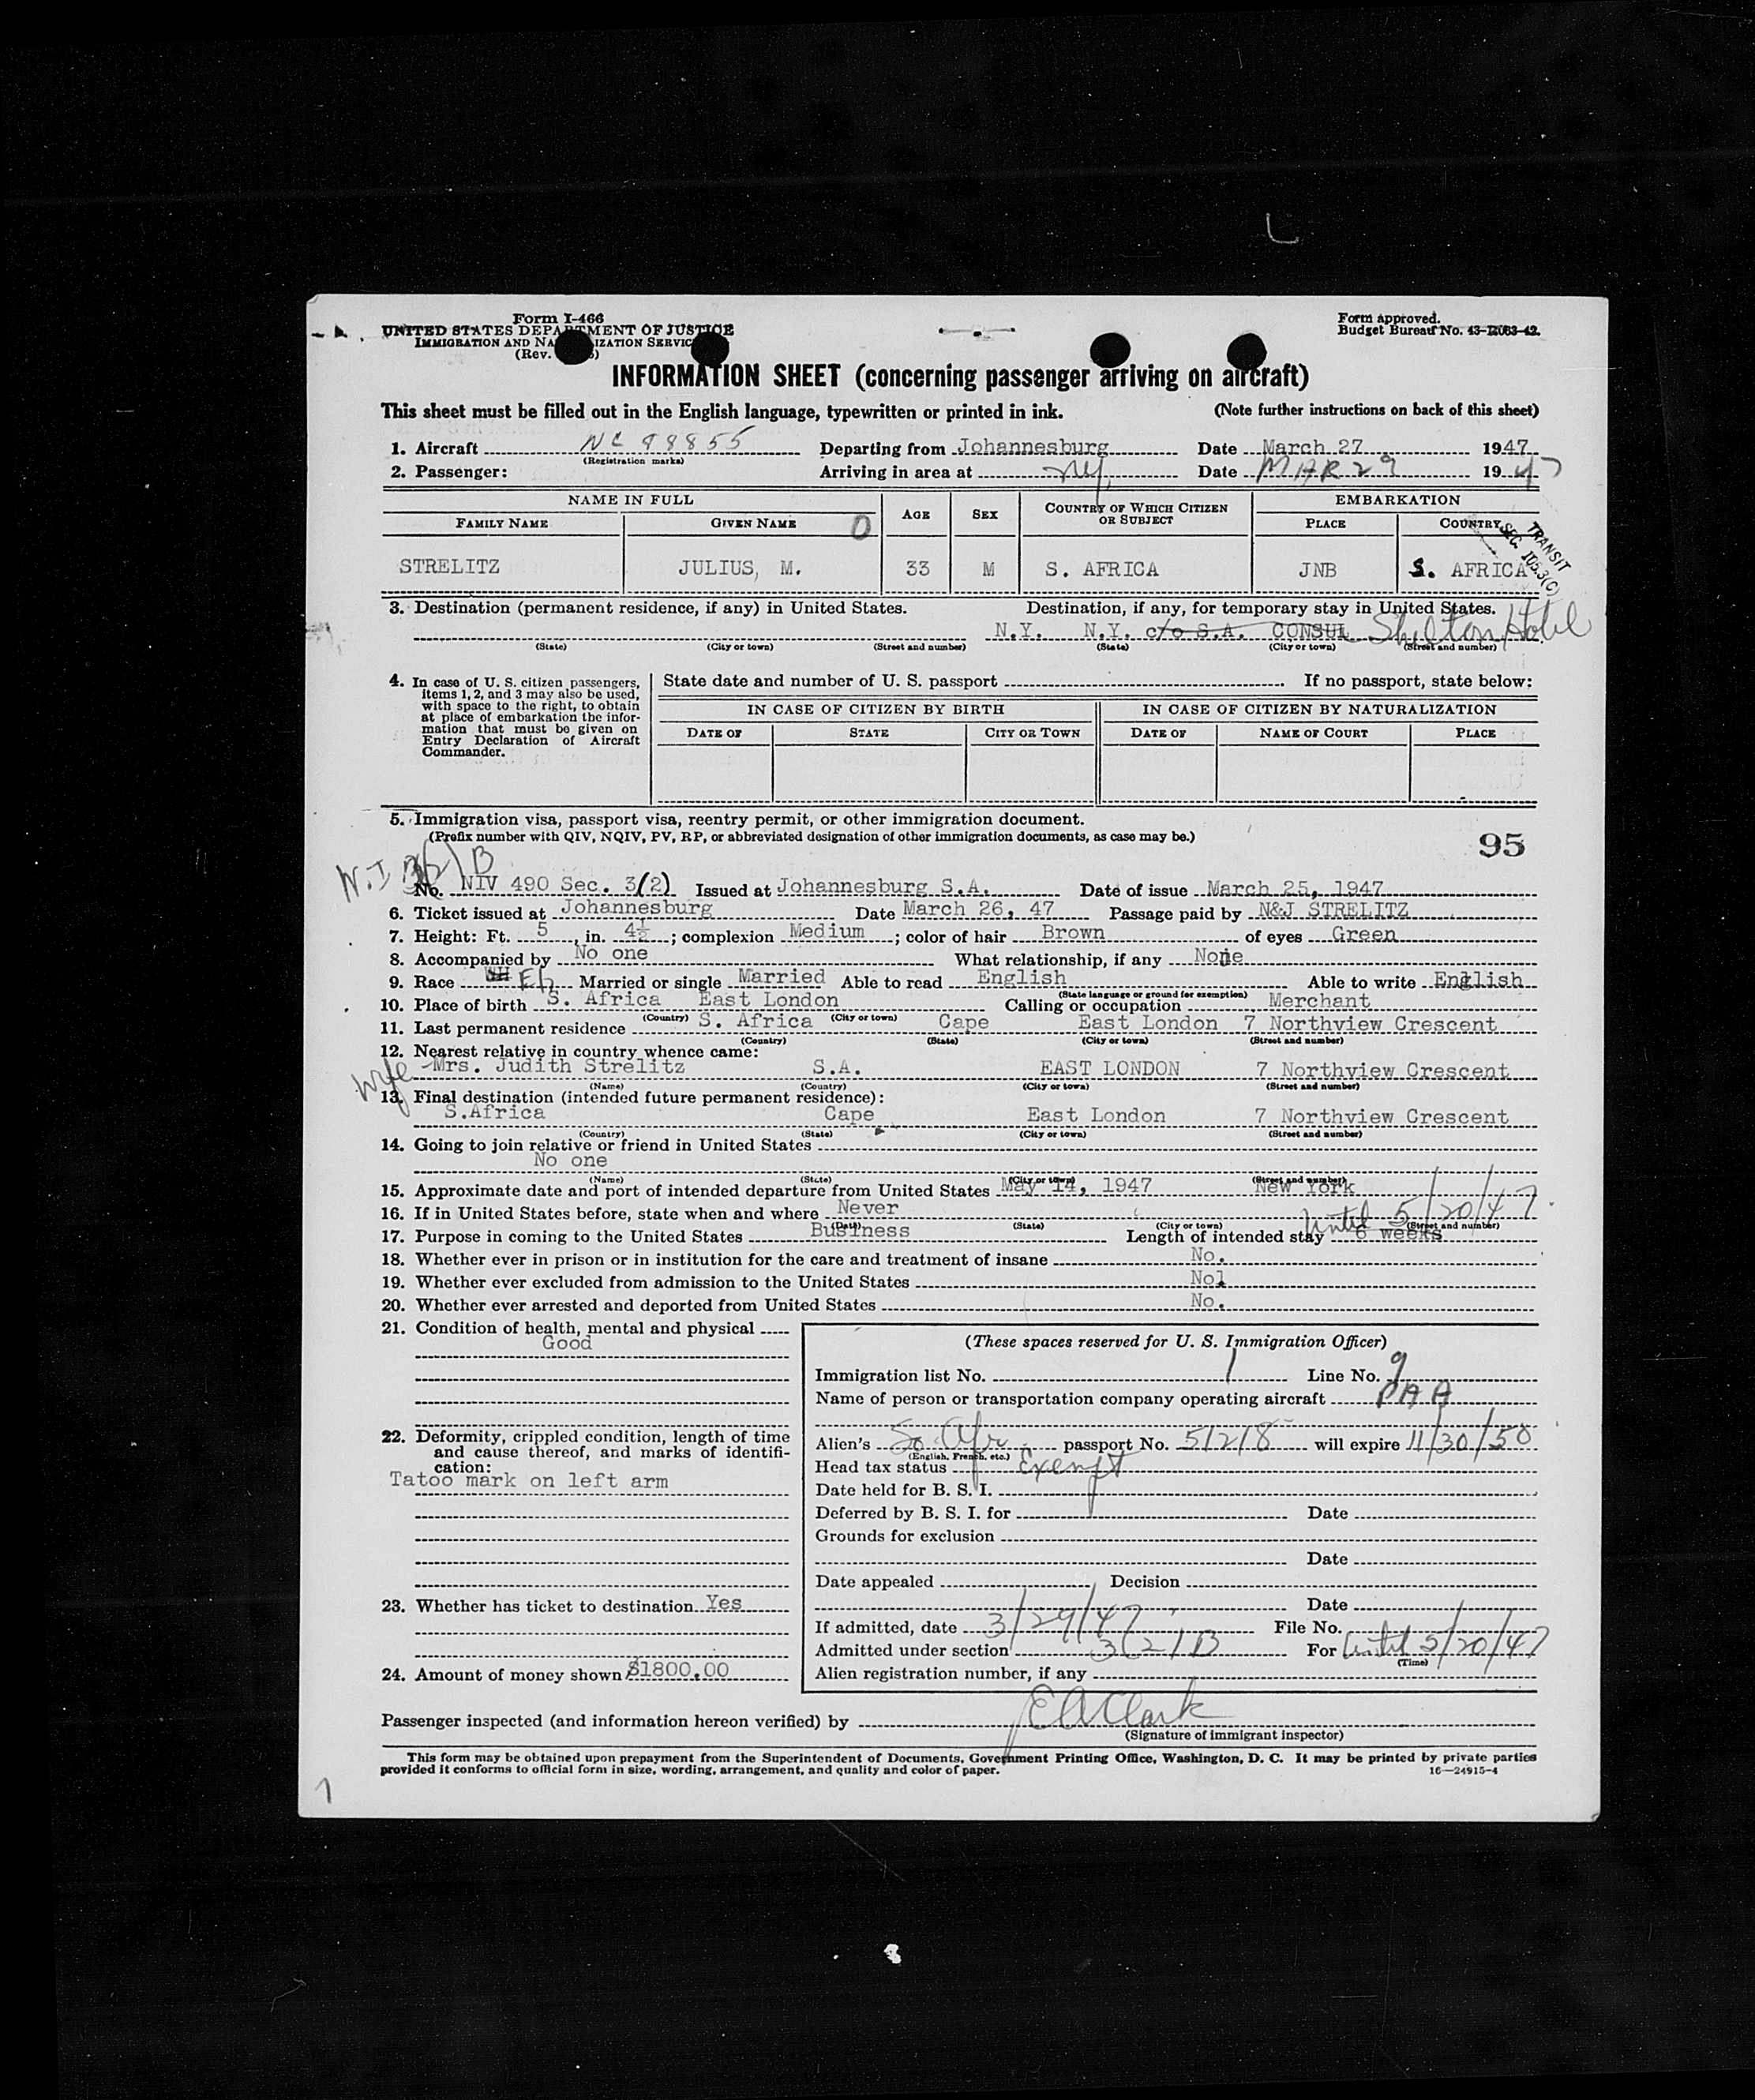 Form I-466
UNITED STATES DEPARTMENT OF JUSTICE
IMMIGRATION AND NATURALIZATION SERVICE
(Rev.
Form approved.
Budget Bureau No. 43-R083-42.
INFORMATION SHEET (concerning passenger arriving on aircraft)
This sheet must be filled out in the English language, typewritten or printed in ink. (Note further instructions on back of this sheet)
1. Aircraft NC 88855 Departing from Johannesburg Date March 27 1947
(Registration marks)
2. Passenger: Arriving in area at NY Date MAR 29 1947
NAME IN FULL AGE SEX COUNTRY OF WHICH CITIZEN OR SUBJECT EMBARKATION
FAMILY NAME GIVEN NAME PLACE COUNTRY
0
TRANSIT
SEC. 103.3(C)
STRELITZ JULIUS, M. 33 M S. AFRICA JNB S. AFRICA
3. Destination (permanent residence, if any) in United States. Destination, if any, for temporary stay in United States.
N.Y. N.Y. c/o S.A. CONSUL Shelton Hotel
(State) (City or town) (Street and number) (State) (City or town) (Street and number)
4. In case of U. S. citizen passengers, items 1, 2, and 3 may also be used, with space to the right, to obtain at place of embarkation the information that must be given on Entry Declaration of Aircraft Commander.
State date and number of U. S. passport If no passport, state below:
IN CASE OF CITIZEN BY BIRTH IN CASE OF CITIZEN BY NATURALIZATION
DATE OF STATE CITY OR TOWN DATE OF NAME OF COURT PLACE
5. Immigration visa, passport visa, reentry permit, or other immigration document.
(Prefix number with QIV, NQIV, PV, RP, or abbreviated designation of other immigration documents, as case may be.)
95
N.I 3(2)B
No. NIV 490 Sec. 3(2) Issued at Johannesburg S.A. Date of issue March 25, 1947
6. Ticket issued at Johannesburg Date March 26, 47 Passage paid by N&J STRELITZ
7. Height: Ft. 5, in. 4½; complexion Medium; color of hair Brown of eyes Green
8. Accompanied by No one What relationship, if any None
9. Race WH Eh Married or single Married Able to read English Able to write English
(State language or ground for exemption)
10. Place of birth S. Africa East London Calling or occupation Merchant
(Country) (City or town)
11. Last permanent residence S. Africa Cape East London 7 Northview Crescent
(Country) (State) (City or town) (Street and number)
12. Nearest relative in country whence came:
wife Mrs. Judith Strelitz S.A. EAST LONDON 7 Northview Crescent
(Name) (Country) (City or town) (Street and number)
13. Final destination (intended future permanent residence):
S.Africa Cape East London 7 Northview Crescent
(Country) (State) (City or town) (Street and number)
14. Going to join relative or friend in United States
No one
(Name) (State) (City or town) (Street and number)
15. Approximate date and port of intended departure from United States May 14, 1947 New York
16. If in United States before, state when and where Never
(Date) (State) (City or town) (Street and number)
until 5/20/47
17. Purpose in coming to the United States Business Length of intended stay 6 weeks
18. Whether ever in prison or in institution for the care and treatment of insane No.
19. Whether ever excluded from admission to the United States No.
20. Whether ever arrested and deported from United States No.
21. Condition of health, mental and physical
Good
22. Deformity, crippled condition, length of time and cause thereof, and marks of identification:
Tatoo mark on left arm
23. Whether has ticket to destination Yes
24. Amount of money shown $1800.00
(These spaces reserved for U. S. Immigration Officer)
Immigration list No. 1 Line No. 9
Name of person or transportation company operating aircraft PAA
Alien's So Afr passport No. 51218 will expire 11/30/50
(English, French, etc.)
Head tax status Exempt
Date held for B. S. I.
Deferred by B. S. I. for Date
Grounds for exclusion
Date
Date appealed Decision
Date
If admitted, date 3/29/47 File No.
Admitted under section 3(2)B For until 5/20/47
(Time)
Alien registration number, if any
Passenger inspected (and information hereon verified) by EAClark
(Signature of immigrant inspector)
This form may be obtained upon prepayment from the Superintendent of Documents, Government Printing Office, Washington, D. C. It may be printed by private parties
provided it conforms to official form in size, wording, arrangement, and quality and color of paper. 16—24915-4
1